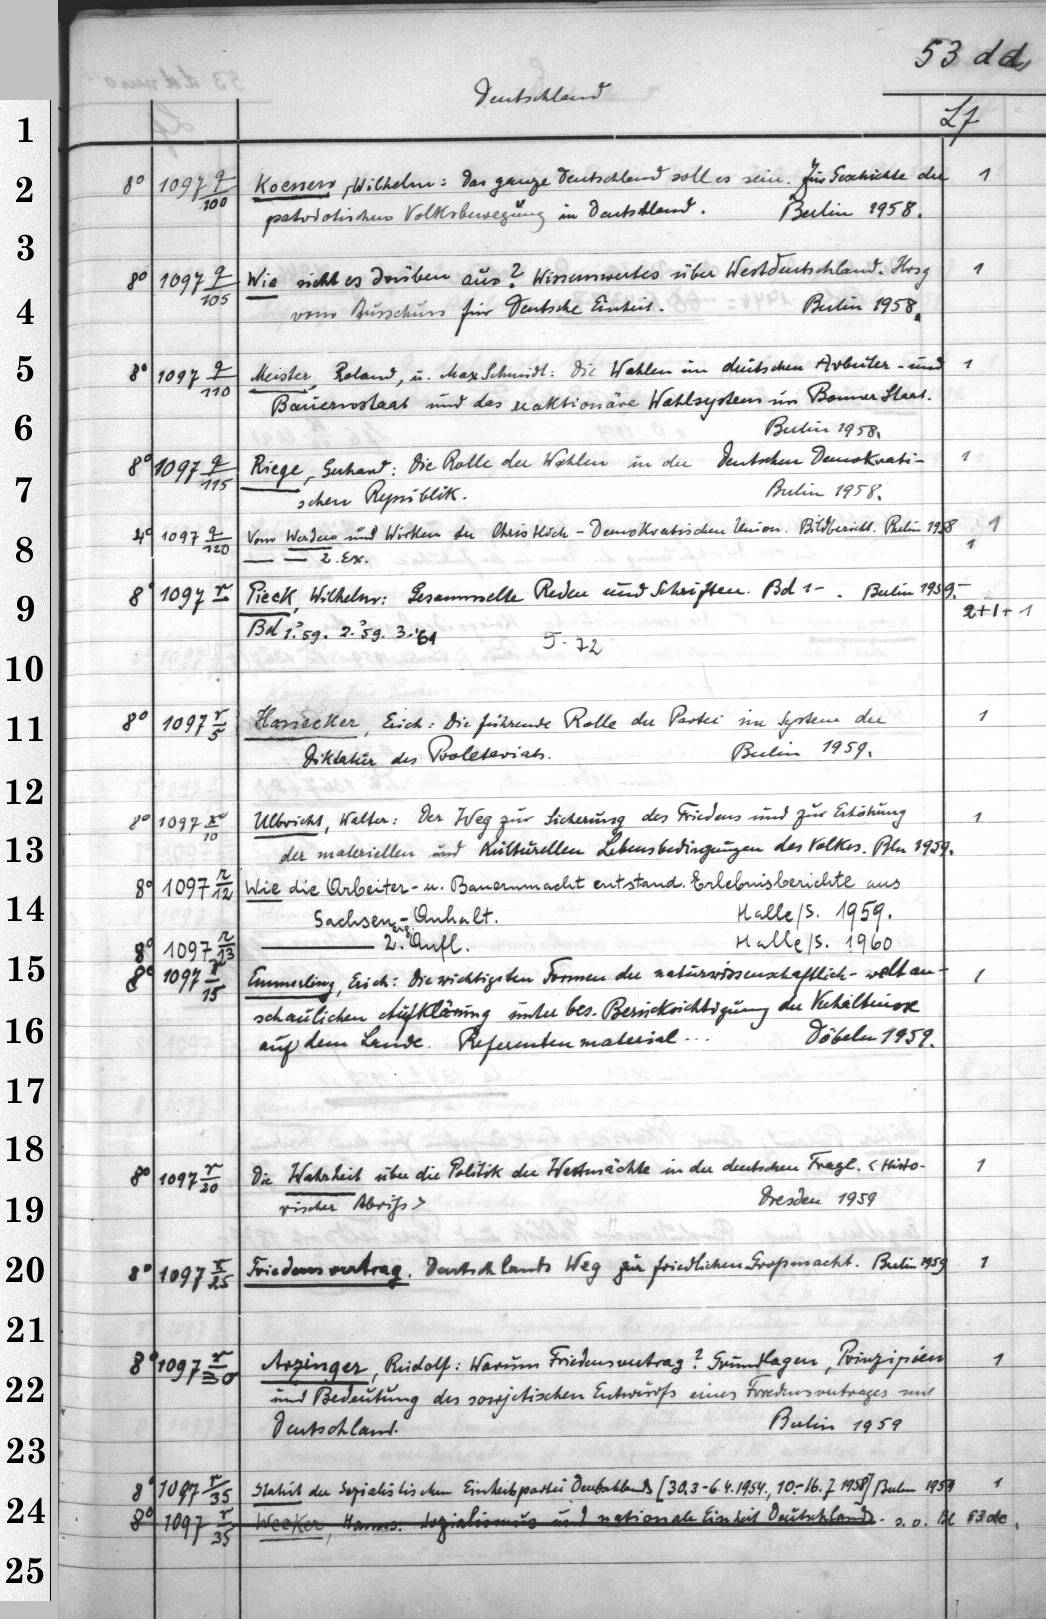 53 dd
Deutschland
Lf
1
2
3
4
5
6
7
8
9
10
11
12
13
14
15
16
17
18
19
20
21
22
23
24
25
8° 1097 q/100 Koenen, Wilhelm: Das ganze Deutschland soll es sein. Zur Geschichte der 1
patriotischen Volksbewegung in Deutschland. Berlin 1958.
8° 1097 q/105 Wie sieht es drüben aus? Wissenswertes über Westdeutschland. Hrsg 1
vom Ausschuss für Deutsche Einheit. Berlin 1958.
8° 1097 q/110 Meister, Roland, u. Max Schmidt: Die Wahlen im deutschen Arbeiter- und 1
Bauernstaat und das reaktionäre Wahlsystem im Bonner Staat.
Berlin 1958.
8° 1097 q/115 Riege, Gerhard: Die Rolle der Wahlen in der Deutschen Demokrati- 1
schen Republik. Berlin 1958.
4° 1097 q/120 Vom Werden und Wirken der Christlich-Demokratischen Union. Bildbericht. Berlin 1958 1
— — 2. Ex. 1
8° 1097 r Pieck, Wilhelm: Gesammelte Reden und Schriften. Bd 1- . Berlin 1959-
2+1+1
Bd 1.'59. 2.'59. 3.'61 5.72
8° 1097 r/5 Honecker, Erich: Die führende Rolle der Partei im System der 1
Diktatur des Proletariats. Berlin 1959.
8° 1097 r/10 Ulbricht, Walter: Der Weg zur Sicherung des Friedens und zur Erhöhung 1
der materiellen und kulturellen Lebensbedingungen des Volkes. Bln 1959.
8° 1097 r/12 Wie die Arbeiter- u. Bauernmacht entstand. Erlebnisberichte aus
Sachsen-Anhalt. Halle/S. 1959.
8° 1097 r/13 —— 2. erg. Aufl. Halle/S. 1960
8° 1097 r/15 Emmerling, Erich: Die wichtigsten Formen der naturwissenschaftlich-weltan- 1
schaulichen Aufklärung unter bes. Berücksichtigung der Verhältnisse
auf dem Lande. Referentenmaterial... Döbeln 1959.
8° 1097 r/20 Die Wahrheit über die Politik der Westmächte in der deutschen Frage. <Histo- 1
rischer Abriß> Dresden 1959
8° 1097 r/25 Friedensvertrag. Deutschlands Weg zur friedlichen Großmacht. Berlin 1959 1
8° 1097 r/30 Arzinger, Rudolf: Warum Friedensvertrag? Grundlagen, Prinzipien 1
und Bedeutung des sowjetischen Entwurfs eines Friedensvertrages mit
Deutschland. Berlin 1959
8° 1097 r/35 Statut der Sozialistischen Einheitspartei Deutschlands [30.3.-6.4.1954., 10.-16.7.1958] Berlin 1959 1
8° 1097 r/35 Hanns: Sozialismus und nationale Einheit Deutschlands. s. o. Bl 53 dc.